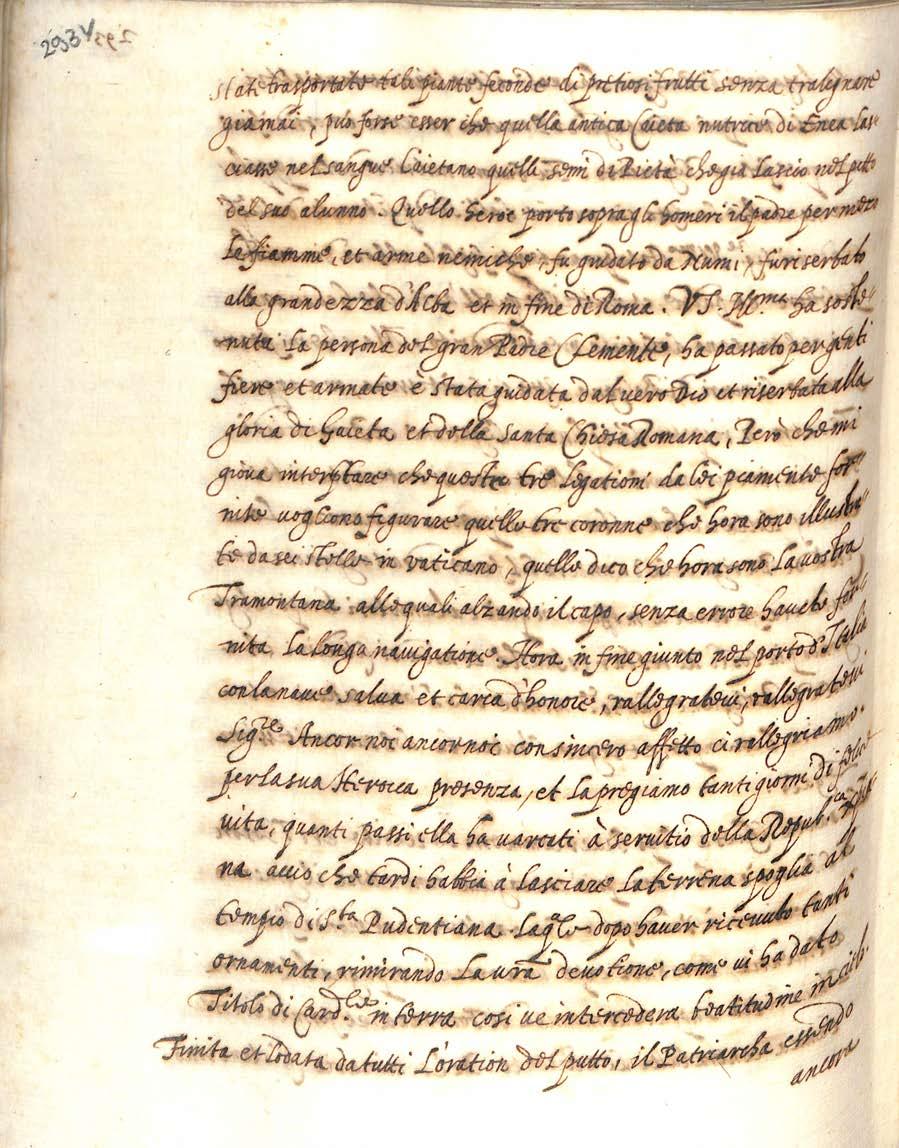 293V
state trasportate tali piante feconde di pretiosi frutti senza tralignare
giamai, può forse esser che quella antica Caieta nutrice di Enea las-
ciasse nel sangue Caietano quelli semi di Pietà che già lascio nel petto
del suo alunno. Quello heroe portò sopra gli homeri il padre per mezo
le fiamme, et arme nemiche, fu guidato da Numi, fu riserbato
alla grandezza d'Alba et in fine di Roma. VS. Ill.ma ha soste-
nuta la persona del gran Padre Clemente, ha passato per genti
fiere et armate è stata guidata dal vero Dio et riserbata alla
gloria di Gaieta et della Santa Chiesa Romana, Però che mi
giova interptare che queste tre legationi da lei piamente for-
nite vogliono figurare quelle tre coronne che hora sono illustra-
te da sei stelle in vaticano, quelle dico che hora sono la vostra
Tramontana alle quali alzando il capo, senza errore havete for-
nita la longa navigatione. Hora in fine giunto nel porto d'Italia
con la nave salva et carca d'honore, rallegratevi, rallegratevi
Sig.re Ancor noi ancor noi con sincero affetto ci rallegriamo
per la sua Heroica presenza, et la pregiamo tanti giorni di felice
vita, quanti passi ella ha varcati à servitio della Repub.ca
na acciò che tardi habbia à lasciare la terrena spoglia al
tempio di S.ta Pudentiana. laqle dopo haver ricevuto tanti
ornamenti, rimirando la vra devotione, come vi ha dato
Titolo di Card.le in terra così ve intercedera beatitudine in cielo.
Finita et lodata da tutti l'oration del putto, il Patriarcha essendo
ancora